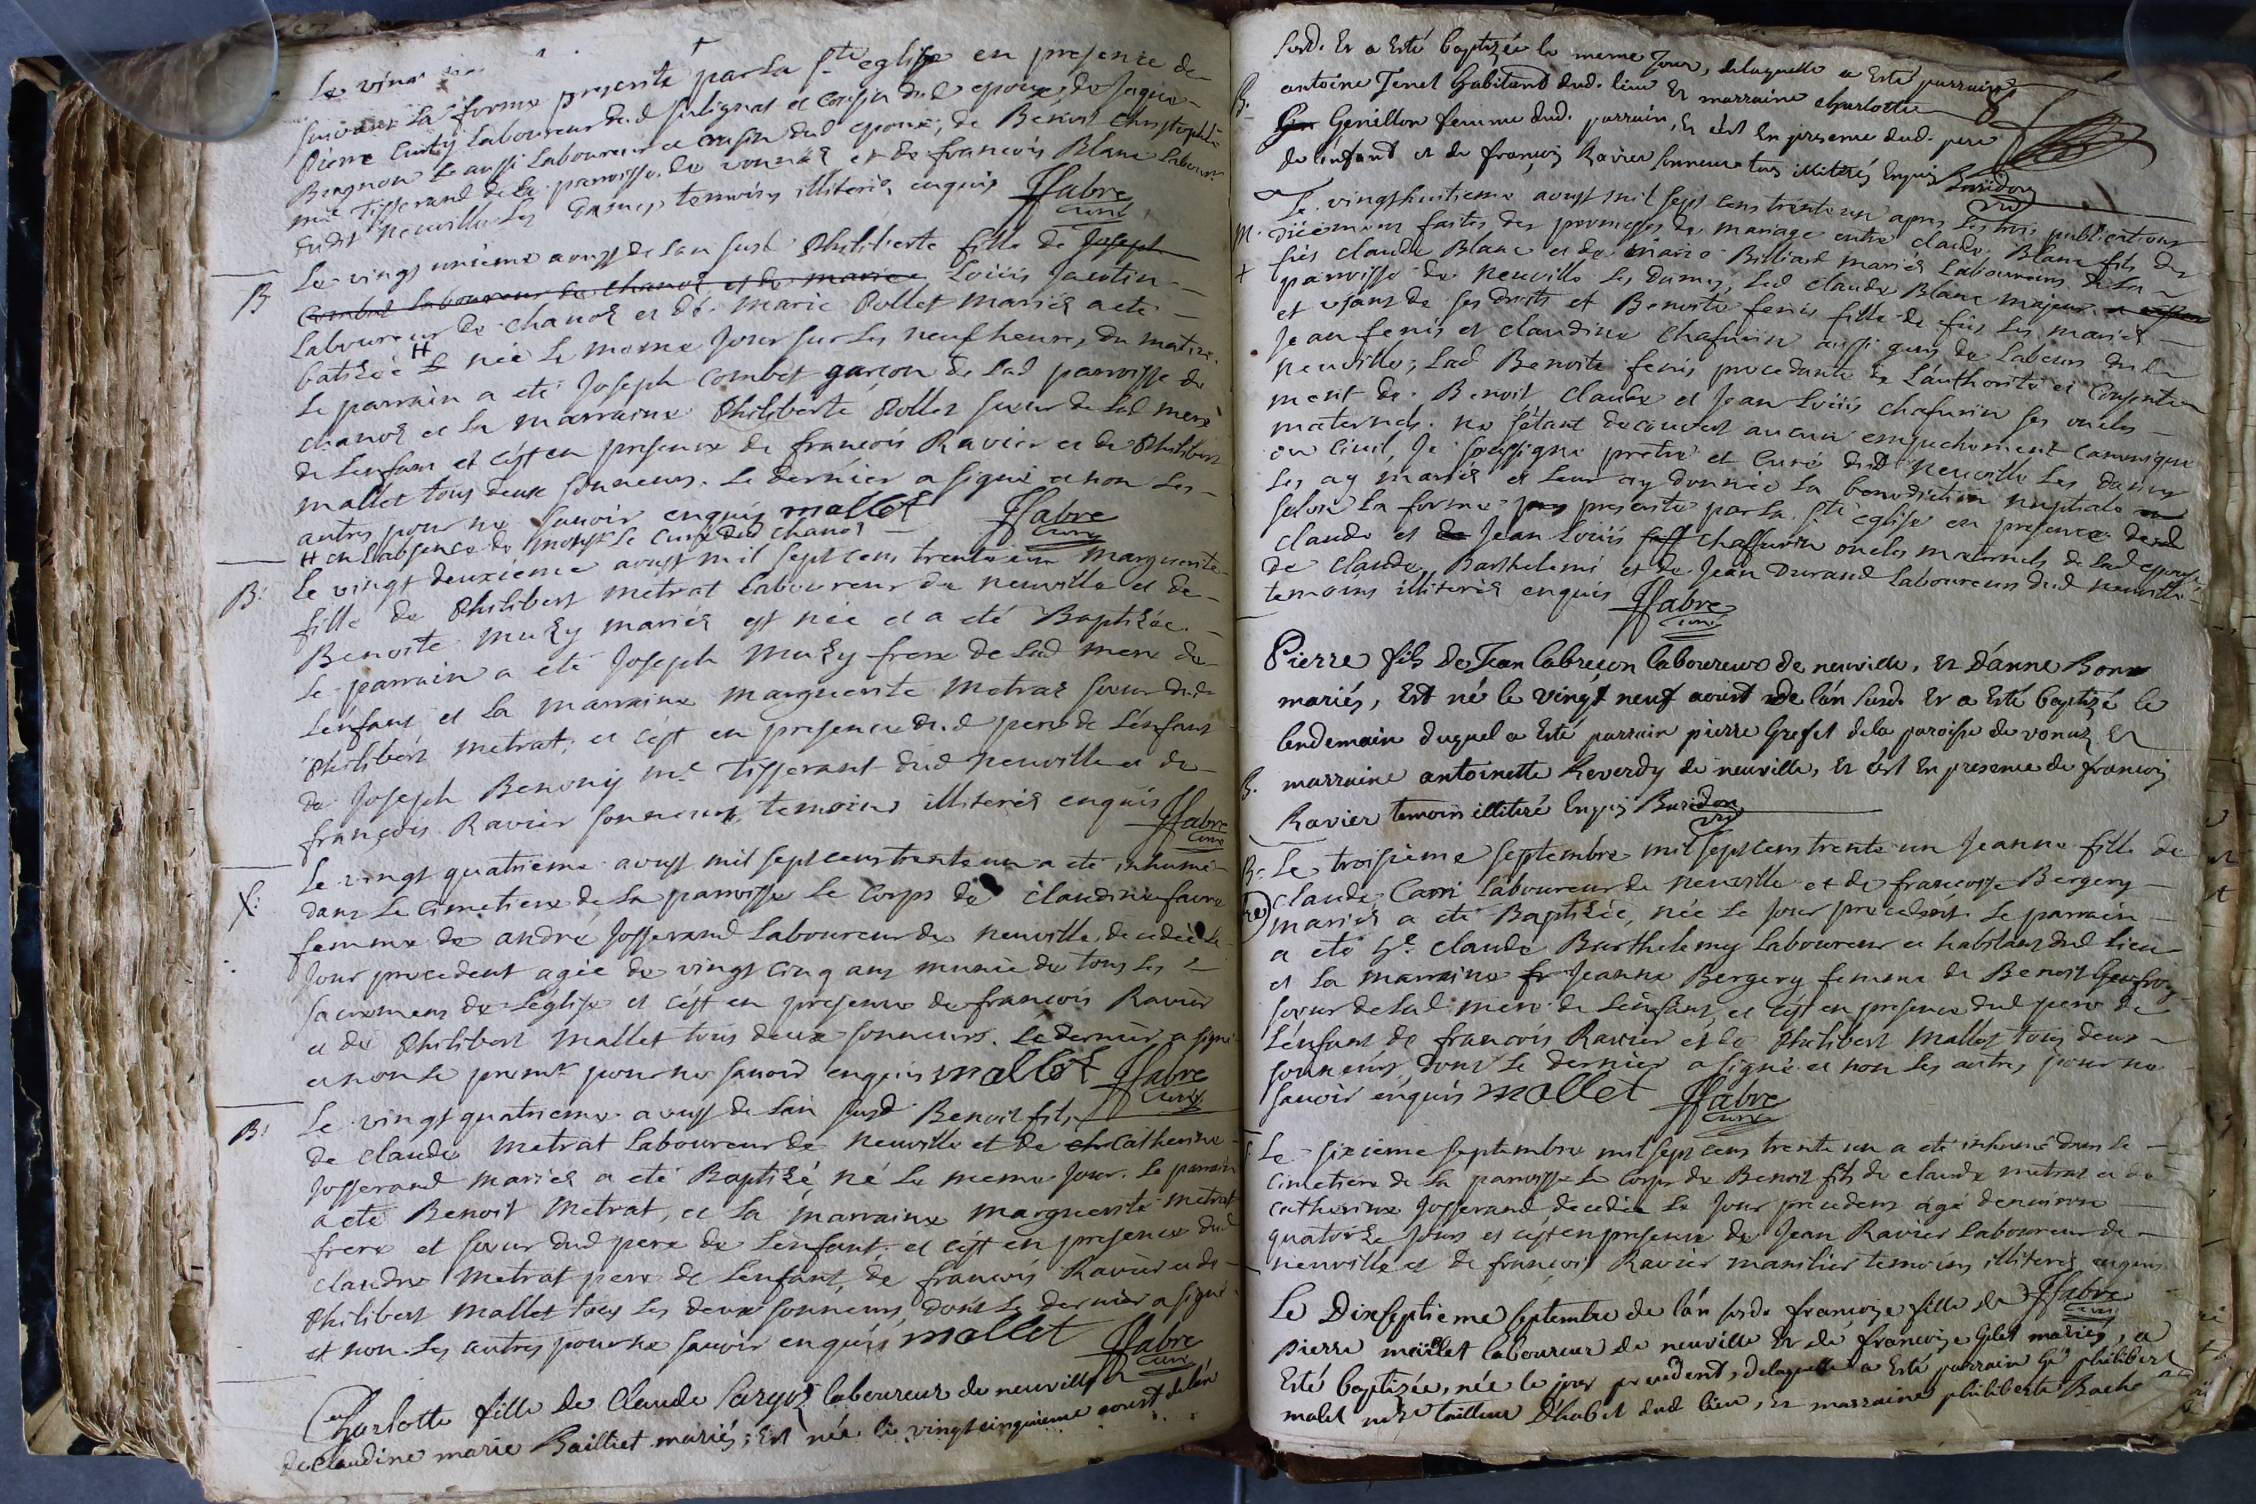 Le vin
suivant la forme prescrite par la Ste eglise en presence de
Pierre laboureur dud et cousin dud epoux, de Jaque
aussi laboureur et cousin dud epoux, de Benoit Christophle
me Tisserand de la paroisse de vonnas et de francois Blanc labour
dudit neuville les Dames, temoins illiterés enquis JFabre
curé
Le vingt unieme aoust de lan susd Philiberte fille de Joseph
B
Combet Laboureur de chanos et de marie Louis Jacotin
Laboureur de chanos et de Marie Pollet mariés a eté
batisée H née le meme jour sur les neuf heures du matin.
le parrain a eté Joseph Combet garçon de lad paroisse de
chanos et la marraine Philiberte Pollet soeur de lad mere
de lenfant et c'est en presence de francois Ravier et de Philibert
mallet tous deux sonneurs. le dernier a signé a non les
autres pour ne savoir enquis mallet JFabre
curé
H en l'absence de monsr le curé dud chanos
B:
Le vingt deuxieme aoust mil sept cens trente un marguerite
fille de Philibert métrat laboureur de neuville et de
Benoite muzy mariés est née et a eté Baptisée.
le parrain a eté Joseph Muzy frere de lad mere de
lenfant, et la marraine marguerite metrat soeur dud
Philibert metrat; et c'est en presence dud pere de l'enfant
de Joseph Benony me Tisserant dud neuville et de
françois Ravier sonneur, temoins illiterés enquis JFabre
curé
Le vingt quatrieme aoust mil sept cens trente un a eté inhumé
dans le cimetiere de la paroisse le corps de claudine favre
femme de andré Josserand laboureur de neuville, decedée le
jour precedent agée de vingt cinq ans munie de tous les
sacremens de l'eglise et c'est en presence de francois Ravier
et de Philibert mallet tous deux sonneurs. le dernier a signé
et non le premr pour ne savoir enquis mallet JFabre
curé
B:
Le vingt quatrieme aoust de lan susd Benoit fils
de claude Metrat laboureur de neuville et de ch catherine
Josserand mariés a eté Baptisé né le meme jour. le parrain
a eté Benoit Metrat, et la marraine marguerite metrat
frere et soeur dud pere de l'enfant. et c'est en presence dud
claude metrat pere de lenfant, de francois Ravier et de
Philibert mallet tous les deux sonneurs, dont le dernier a signé
et non les autres pour ne savoir enquis mallet JFabre
curé
Charlotte fille de Claude laboureur de neuville et
de claudine marie Bailliet mariés; est née le vingt cinquieme aoust de lán
susd. Er a Esté baptizée le meme jour, delaquelle a Esté parrain
B.
antoine Tenet habitand dud. lieu Er marraine charlotte
Gen Genillon femme dud. parrain, Er c'est En presence dud. pere
de l'enfant et de françois Ravier sonneur tous illitérés Enquis Buridon
vic
Le vingt huitieme aoust mil sept cens trente un apres les trois publications
M.
diëment faites des promesses de mariage entre claude Blanc fils de
fût claude Blanc et de marie Billiard mariés laboureurs de la
paroisse de neuville les dames, led claude Blanc majeur
et usant de ses droits et Benoite fenis fille de fût les mariés
Jean fenis et claudine Chafurin aussi gens de labeur dud
neuville; lad Benoite fenis procedante de l'authorité et consente
ment de Benoit claude et Jean Loüis chafurin ses oncles
maternels. ne s'étant decouvert aucun empechement canonique
ou civil, Je soussigné pretre et curé dudt neuville les dames
les ay mariés et leur ay donnée la benediction nuptiale
selon la forme prescrite par la Ste eglise en presence dud
claude et de Jean Loüis chaffurin oncles maternels de lad epouse
de Claude Barthelemi et de Jean Durand laboureurs dud neuville
temoins illiterés enquis JFabre
curé
Pierre fils de Jean labreçon laboureur de neuville, Er D'anne Bonn
mariés, Est né le vingt neuf aoust de lán susd. Er a Esté baptizé le
lendemain duquel a Esté parrain pierre Grefet dela paroisse de vonaz Er
B.
marraine antoinette Reverdy de neuville, Er c'est En presence de françois
Ravier temoin illitiré Enquis Buridon
vic
B:
Le troisieme septembre mil sept cens trente un Jeanne fille de
claude Carri laboureur de neuville et de francoise Bergery
mariés a eté Baptisée, née le jour precedent. le parrain
a eté hte claude Barthelemy laboureur et habitant dud lieu
et la marraine fr Jeanne Bergery femme de Benoit Geofroy
soeur de lad mere de lenfant, et c'est en presence dud pere de
l'enfant de francois Ravier et de Philibert Mallet tous deux
sonneurs, dont le dernier a signé et non les autres pour ne
savoir enquis mallet JFabre
curé
Le sixieme septembre mil sept cens trente un a eté inhumé dans le
cimetiere de la paroisse le corps de Benoit fils de claude metrat et de
catherine Josserand decedé le jour precedent agé denviron
quatorze jours et c'est en presence de Jean Ravier laboureur de
neuville et de françois Ravier manilier temoins illiterés enquis
JFabre
curé
Le Dixseptieme septembre de lán susd. françoize fille de
pierre moillet laboureur de neuville Er de françoize Gelet mariés, a
Esté baptizée, née le jour precedent, delaquelle a Esté parrain hte philibert
malet me tailleur D'habit dud lieu, Er marraine philiberte Bache